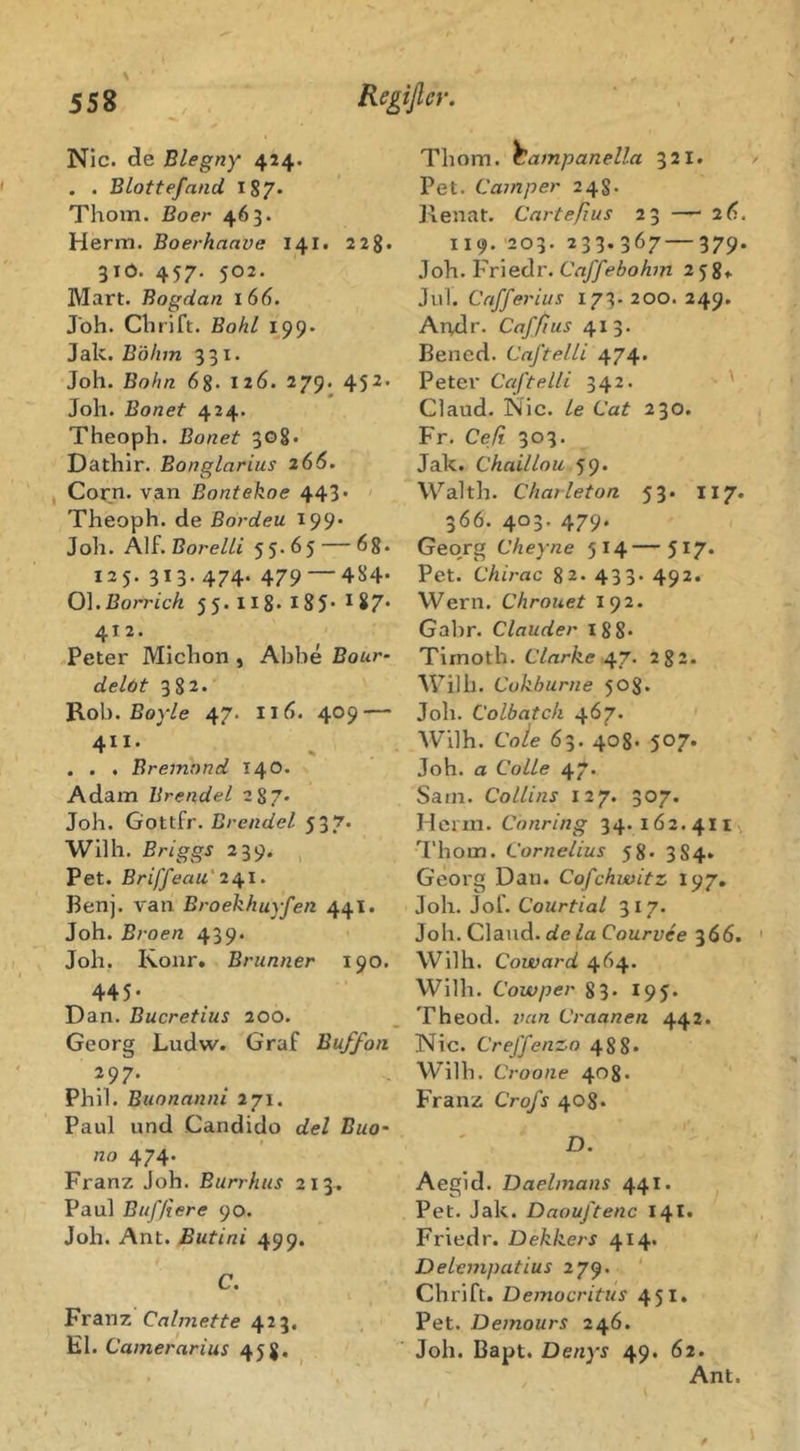 558
Regiſter.
Nic. de Blegny 424.
. . Blottefand 187.
Thom. Boer 463.
Herm. Boerhaave 141. 228.
310. 457. 502.
Mart. Bogdan 166.
Joh. Chriſt. Bohl 199.
Jak. Böhm 331.
Joh. Bohn 68. 126. 279. 452.
Joh. Bonet 424.
Theoph. Bonet 308.
Dathir. Bonglarius 266.
Corn. van Bontekoe 443.
Theoph. de Bordeu 199.
Joh. Alf. Borelli 55. 65 — 68.
125. 313. 474. 479 — 484.
Ol. Borrich 55. 118. 185. 187.
412.
Peter Michon, Abbé Bour-
delót 382.
Rob. Boyle 47. 116. 409 —
411.
. . . Bremond 140.
Adam Brendel 287.
Joh. Gottfr. Brendel 537.
Wilh. Briggs 239.
Pet. Briſſeau 241.
Benj. van Broekhuyſen 441.
Joh. Broen 439.
Joh. Konr. Brunner 190.
445.
Dan. Bucretius 200.
Georg Ludw. Graf Buffon
297.
Phil. Buonanni 271.
Paul und Candido del Buo-
no 474.
Franz Joh. Burrhus 213.
Paul Buſſiere 90.
Joh. Ant. Butini 499.
C.
Franz Calmette 423.
El. Camerarius 458.
Thom. Campanella 321.
Pet. Camper 248.
Renat. Carteſius 23 — 26.
119. 203. 233. 367 — 379.
Joh. Friedr. Caſſebohm 258.
Jul. Caſſerius 173. 200. 249.
Andr. Caſſius 413.
Bened. Caſtelli 474.
Peter Caſtelli 342.
Claud. Nic. le Cat 230.
Fr. Ceſi 303.
Jak. Chaillou 59.
Walth. Charleton 53. 117.
366. 403. 479.
Georg Cheyne 514 — 517.
Pet. Chirac 82. 433. 492.
Wern. Chrouet 192.
Gabr. Clauder 188.
Timoth. Clarke 47. 282.
Wilh. Cokburne 508.
Joh. Colbatch 467.
Wilh. Cole 63. 408. 507.
Joh. a Colle 47.
Sam. Collins 127. 307.
Herm. Conring 34. 162. 411
Thom. Cornelius 58. 384.
Georg Dan. Coſchwitz 197.
Joh. Joſ. Courtial 317.
Joh. Claud. de la Courvée 366.
Wilh. Coward 464.
Wilh. Cowper 83. 195.
Theod. van Craanen 442.
Nic. Creſſenzo 488.
Wilh. Croone 408.
Franz Croſs 408.
D.
Aegid. Daelmans 441.
Pet. Jak. Daouſtenc 141.
Friedr. Dekkers 414.
Delempatius 279.
Chriſt. Democritus 451.
Pet. Demours 246.
Joh. Bapt. Denys 49. 62.
Ant.